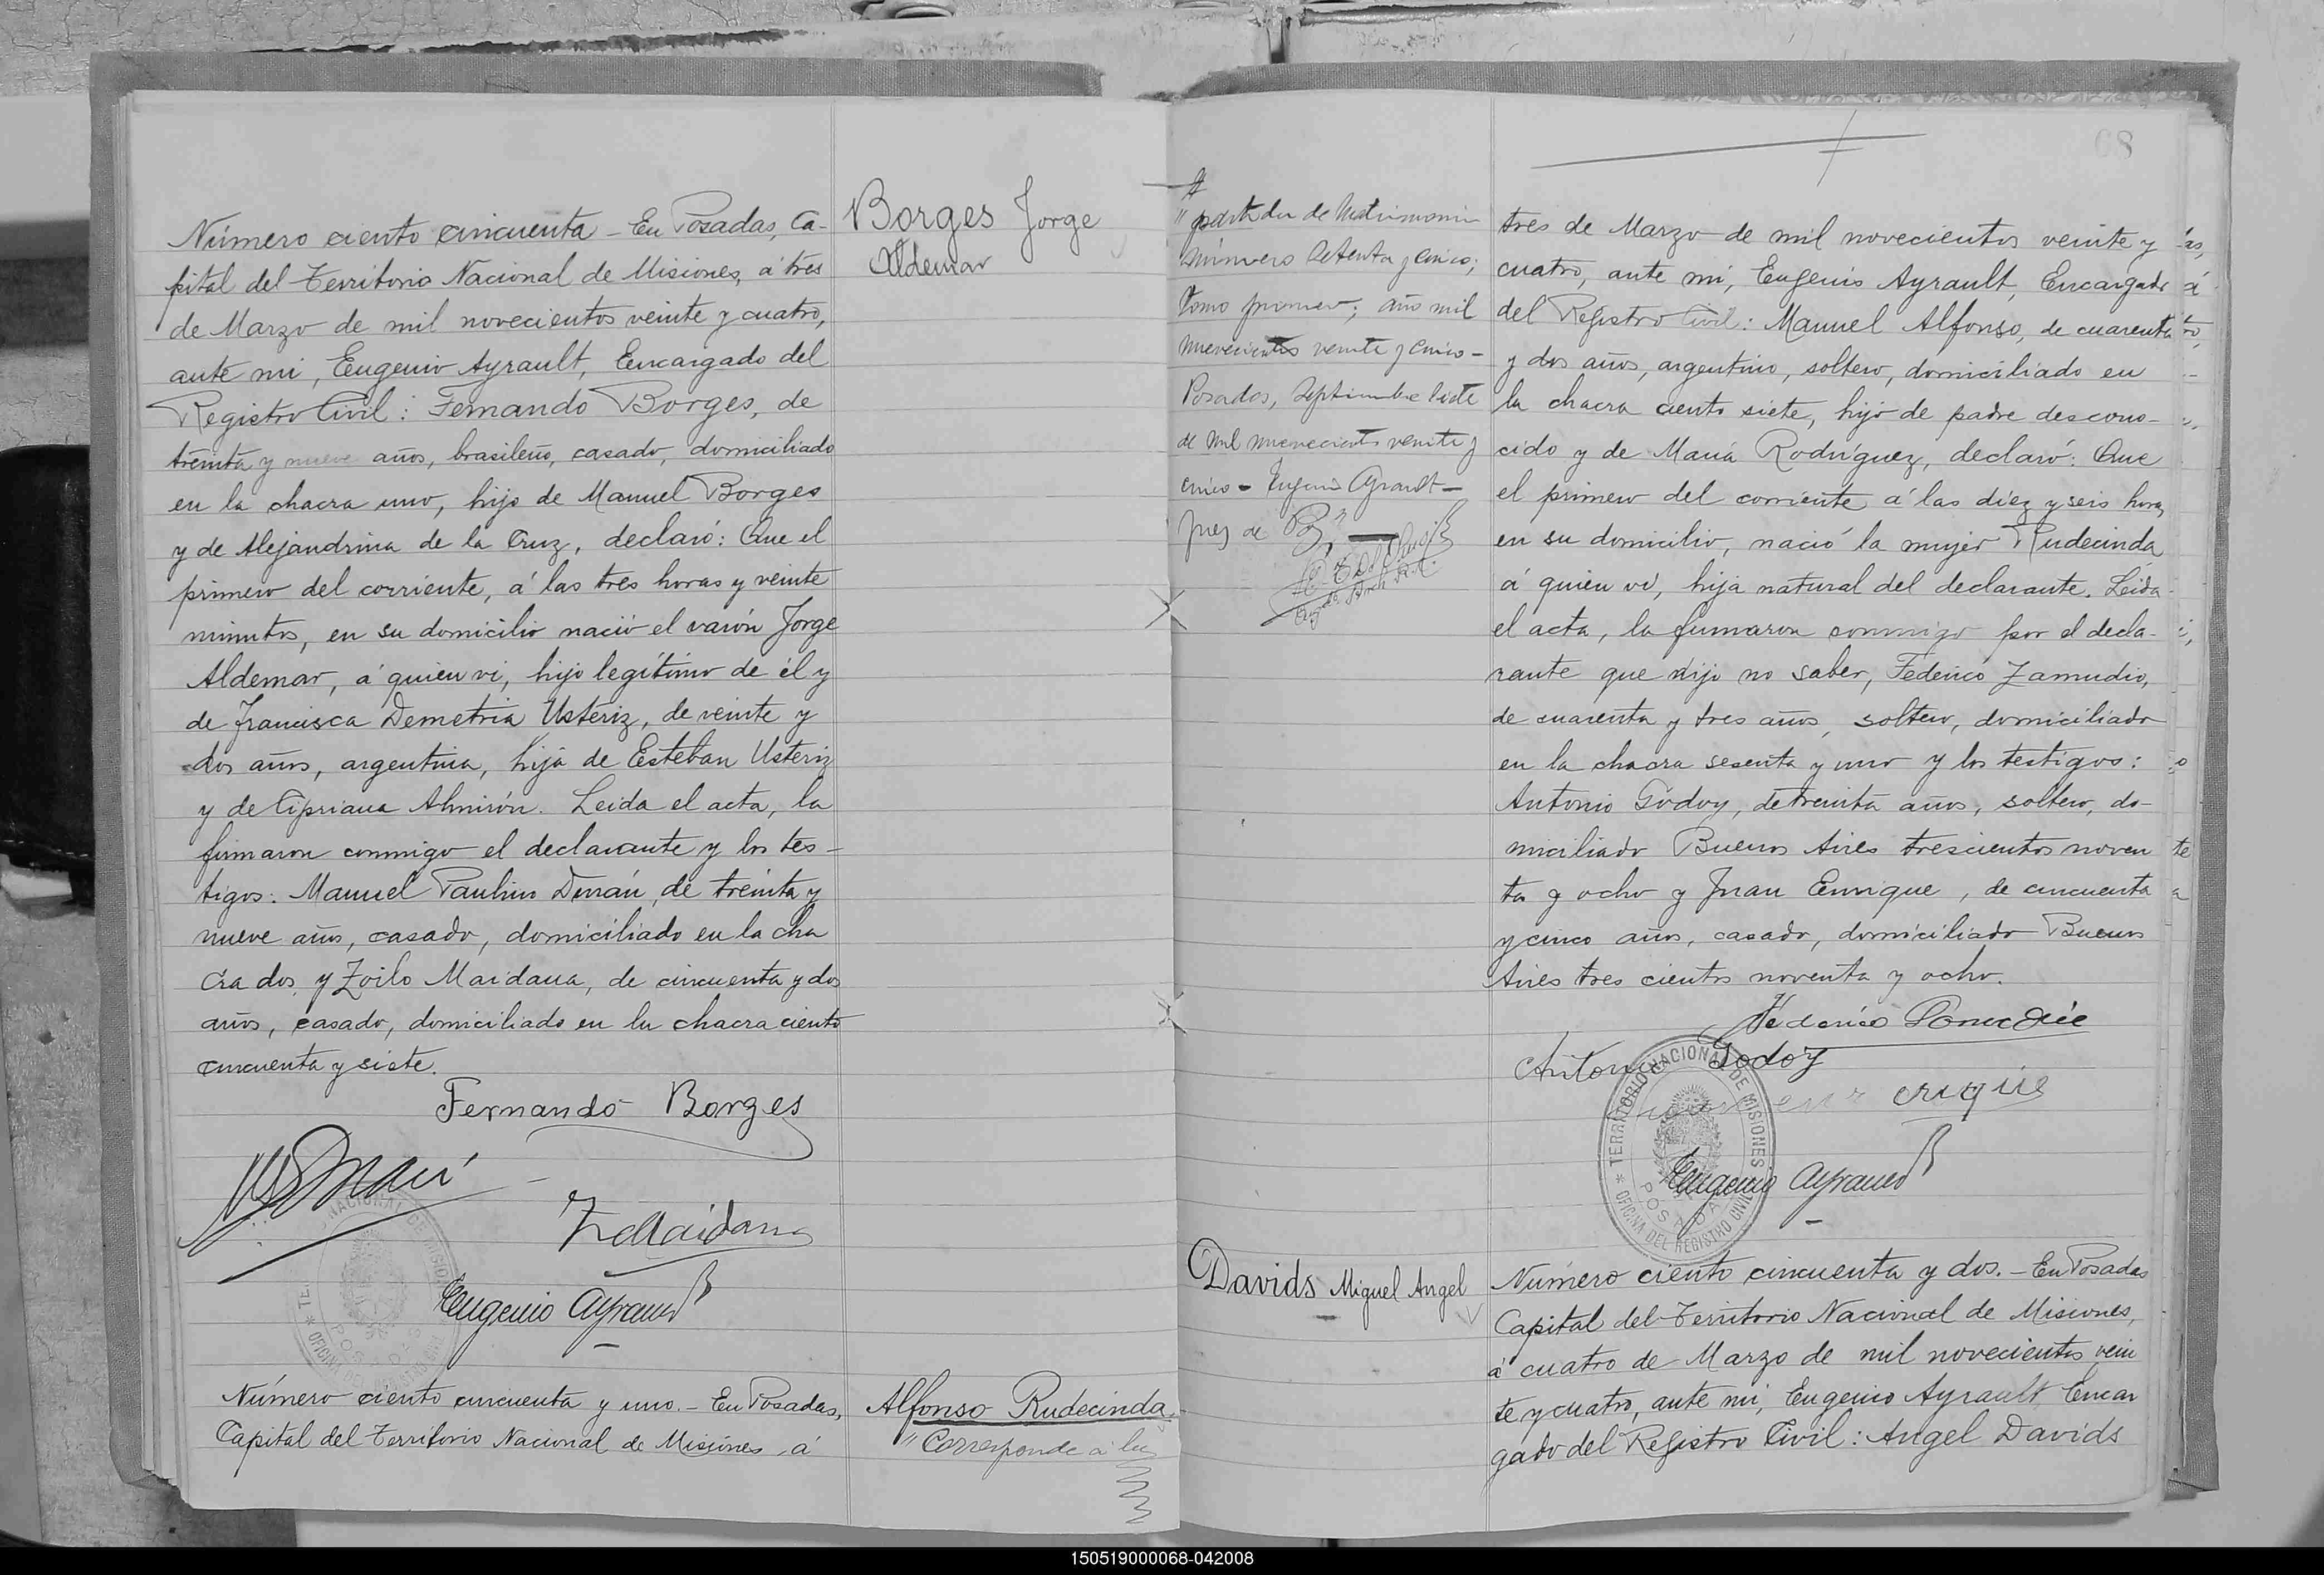 Número ciento cincuenta - En Posadas, Ca-
pital del Territorio Nacional de Misiones, á tres
de Marzo de mil novecientos veinte y cuatro,
ante mi, Eugenio Ayrault, Encargado del
Registro Civil: Fernando Borges, de
treinta y nueve años, brasileño, casado, domiciliado
en la chacra uno, hijo de Manuel Borges
y de Alejandrina de la Cruz, declaró: Que el
primero del corriente, á las tres horas y veinte
minutos, en su domicilio nació el varón Jorge
Aldemar, á quien vi, hijo legítimo de él y
de Francisca Demetria Usteriz, de veinte y
dos años, argentina, hija de Esteban Usteriz
y de Cipriana Almirón. Leida el acta, la
firmaron conmigo el declarante y los tes-
tigos: Manuel Paulino Durán, de treinta y
nueve años, casado, domiciliado en la cha
cra dos, y Zoilo Maidana, de cincuenta y dos
años, casado, domiciliado en la chacra ciento
cincuenta y siete.
Fernando Borges
Z Maidana
Eugenio Ayrault
Número ciento cincuenta y uno. - En Posadas,
Capital del Territorio Nacional de Misiones, á
Borges Jorge
Aldemar
Alfonso Rudecinda
"Corresponde á la
"partida de Matrimonio
número setenta y cinco;
tomo primero; año mil
novecientos veinte y cinco-
Posadas, Septiembre siete
de mil novecientos veinte y
cinco - Eugenio Ayrault -
Juez de
68
tres de Marzo de mil novecientos veinte y
cuatro, ante mi, Eugenio Ayrault, Encargado
del Registro Civil: Manuel Alfonso, de cuarenta
y dos años, argentino, soltero, domiciliado en
la chacra ciento siete, hijo de padre descono-
cido y de María Rodríguez, declaró: Que
el primero del corriente á las diez y seis horas,
en su domicilio, nació la mujer Rudecinda
á quien vi, hija natural del declarante. Leida
el acta, la firmaron conmigo por el decla-
rante que dijo no saber, Federico Zamudio,
de cuarenta y tres años, soltero, domiciliado
en la chacra sesenta y uno y los testigos:
Antonio Godoy, de treinta años, soltero, do-
miciliado Buenos Aires trescientos noven
ta y ocho y Juan Enrique, de cincuenta
y cinco años, casado, domiciliado Buenos
Aires tres cientos noventa y ocho.
Federico
Antonio Godoy
TERRITORIO NACIONAL DE MISIONES
OFICINA DEL REGISTRO CIVIL
POSADAS
Eugenio Ayrault
Davids Miguel Angel
Número ciento cincuenta y dos. - En Posadas
Capital del Territorio Nacional de Misiones,
á cuatro de Marzo de mil novecientos vein
te y cuatro, ante mi, Eugenio Ayrault Encar
gado del Registro Civil: Angel Davids
150519000068-042008